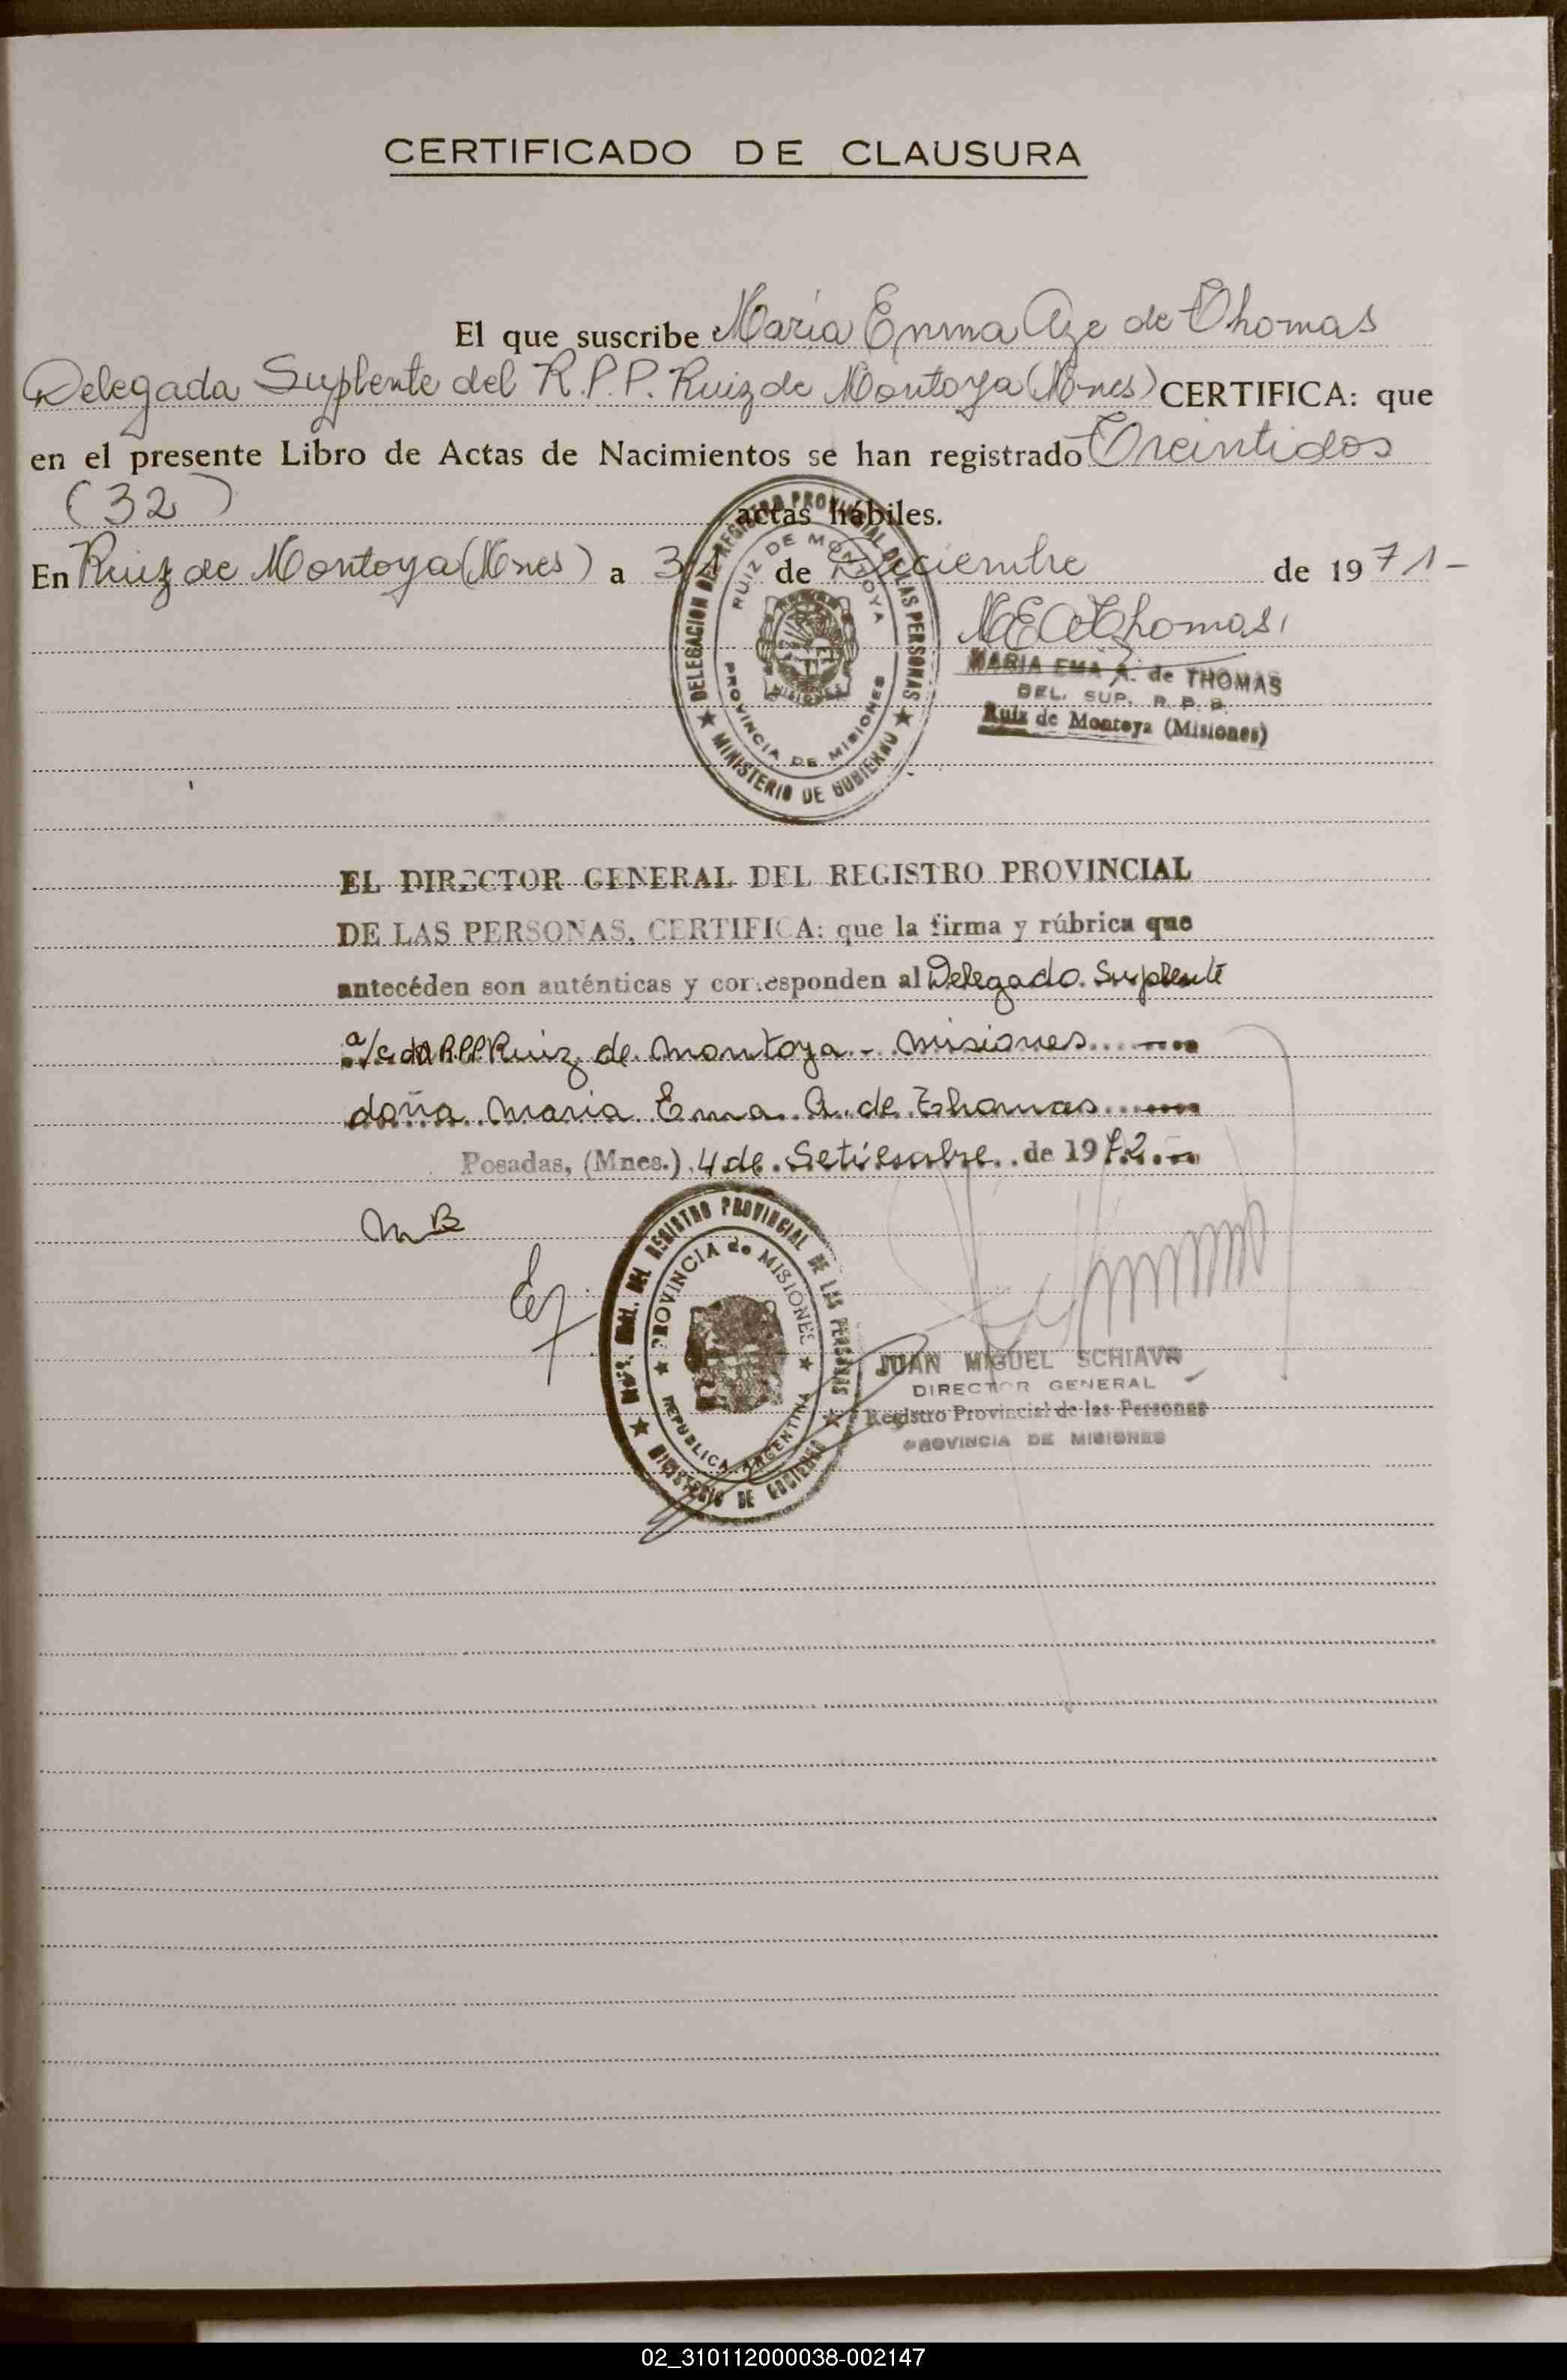 CERTIFICADO DE CLAUSURA
El que suscribe María Emma Aze de Thomas
Delegada Suplente del R.P.P. Ruiz de Montoya (Mnes) CERTIFICA: que
en el presente Libro de Actas de Nacimientos se han registrado Treintidos
(32) actas hábiles.
En Ruiz de Montoya (Mnes) a 31 de Diciembre de 1971-
DELEGACION DEL REGISTRO PROVINCIAL DE LAS PERSONAS
RUIZ DE MONTOYA
MISIONES
PROVINCIA DE MISIONES
★ MINISTERIO DE GOBIERNO ★
MEAThomas
MARIA EMA A. de THOMAS
DEL. SUP. R. P. P.
Ruiz de Montoya (Misiones)
EL DIRECTOR GENERAL DEL REGISTRO PROVINCIAL
DE LAS PERSONAS, CERTIFICA: que la firma y rúbrica que
antecéden son auténticas y corresponden al Delegado Suplente
a/c del R.P.P. Ruiz de Montoya - Misiones
doña Maria Ema A. de Thomas
Posadas, (Mnes.) 4 de Setiembre de 1972
MB
DEL REGISTRO PROVINCIAL DE LAS PERSONAS
PROVINCIA de MISIONES
REPUBLICA ARGENTINA
★ MINISTERIO DE GOBIERNO ★
JUAN MIGUEL SCHIAVA
DIRECTOR GENERAL
Registro Provincial de las Personas
PROVINCIA DE MISIONES
02_310112000038-002147